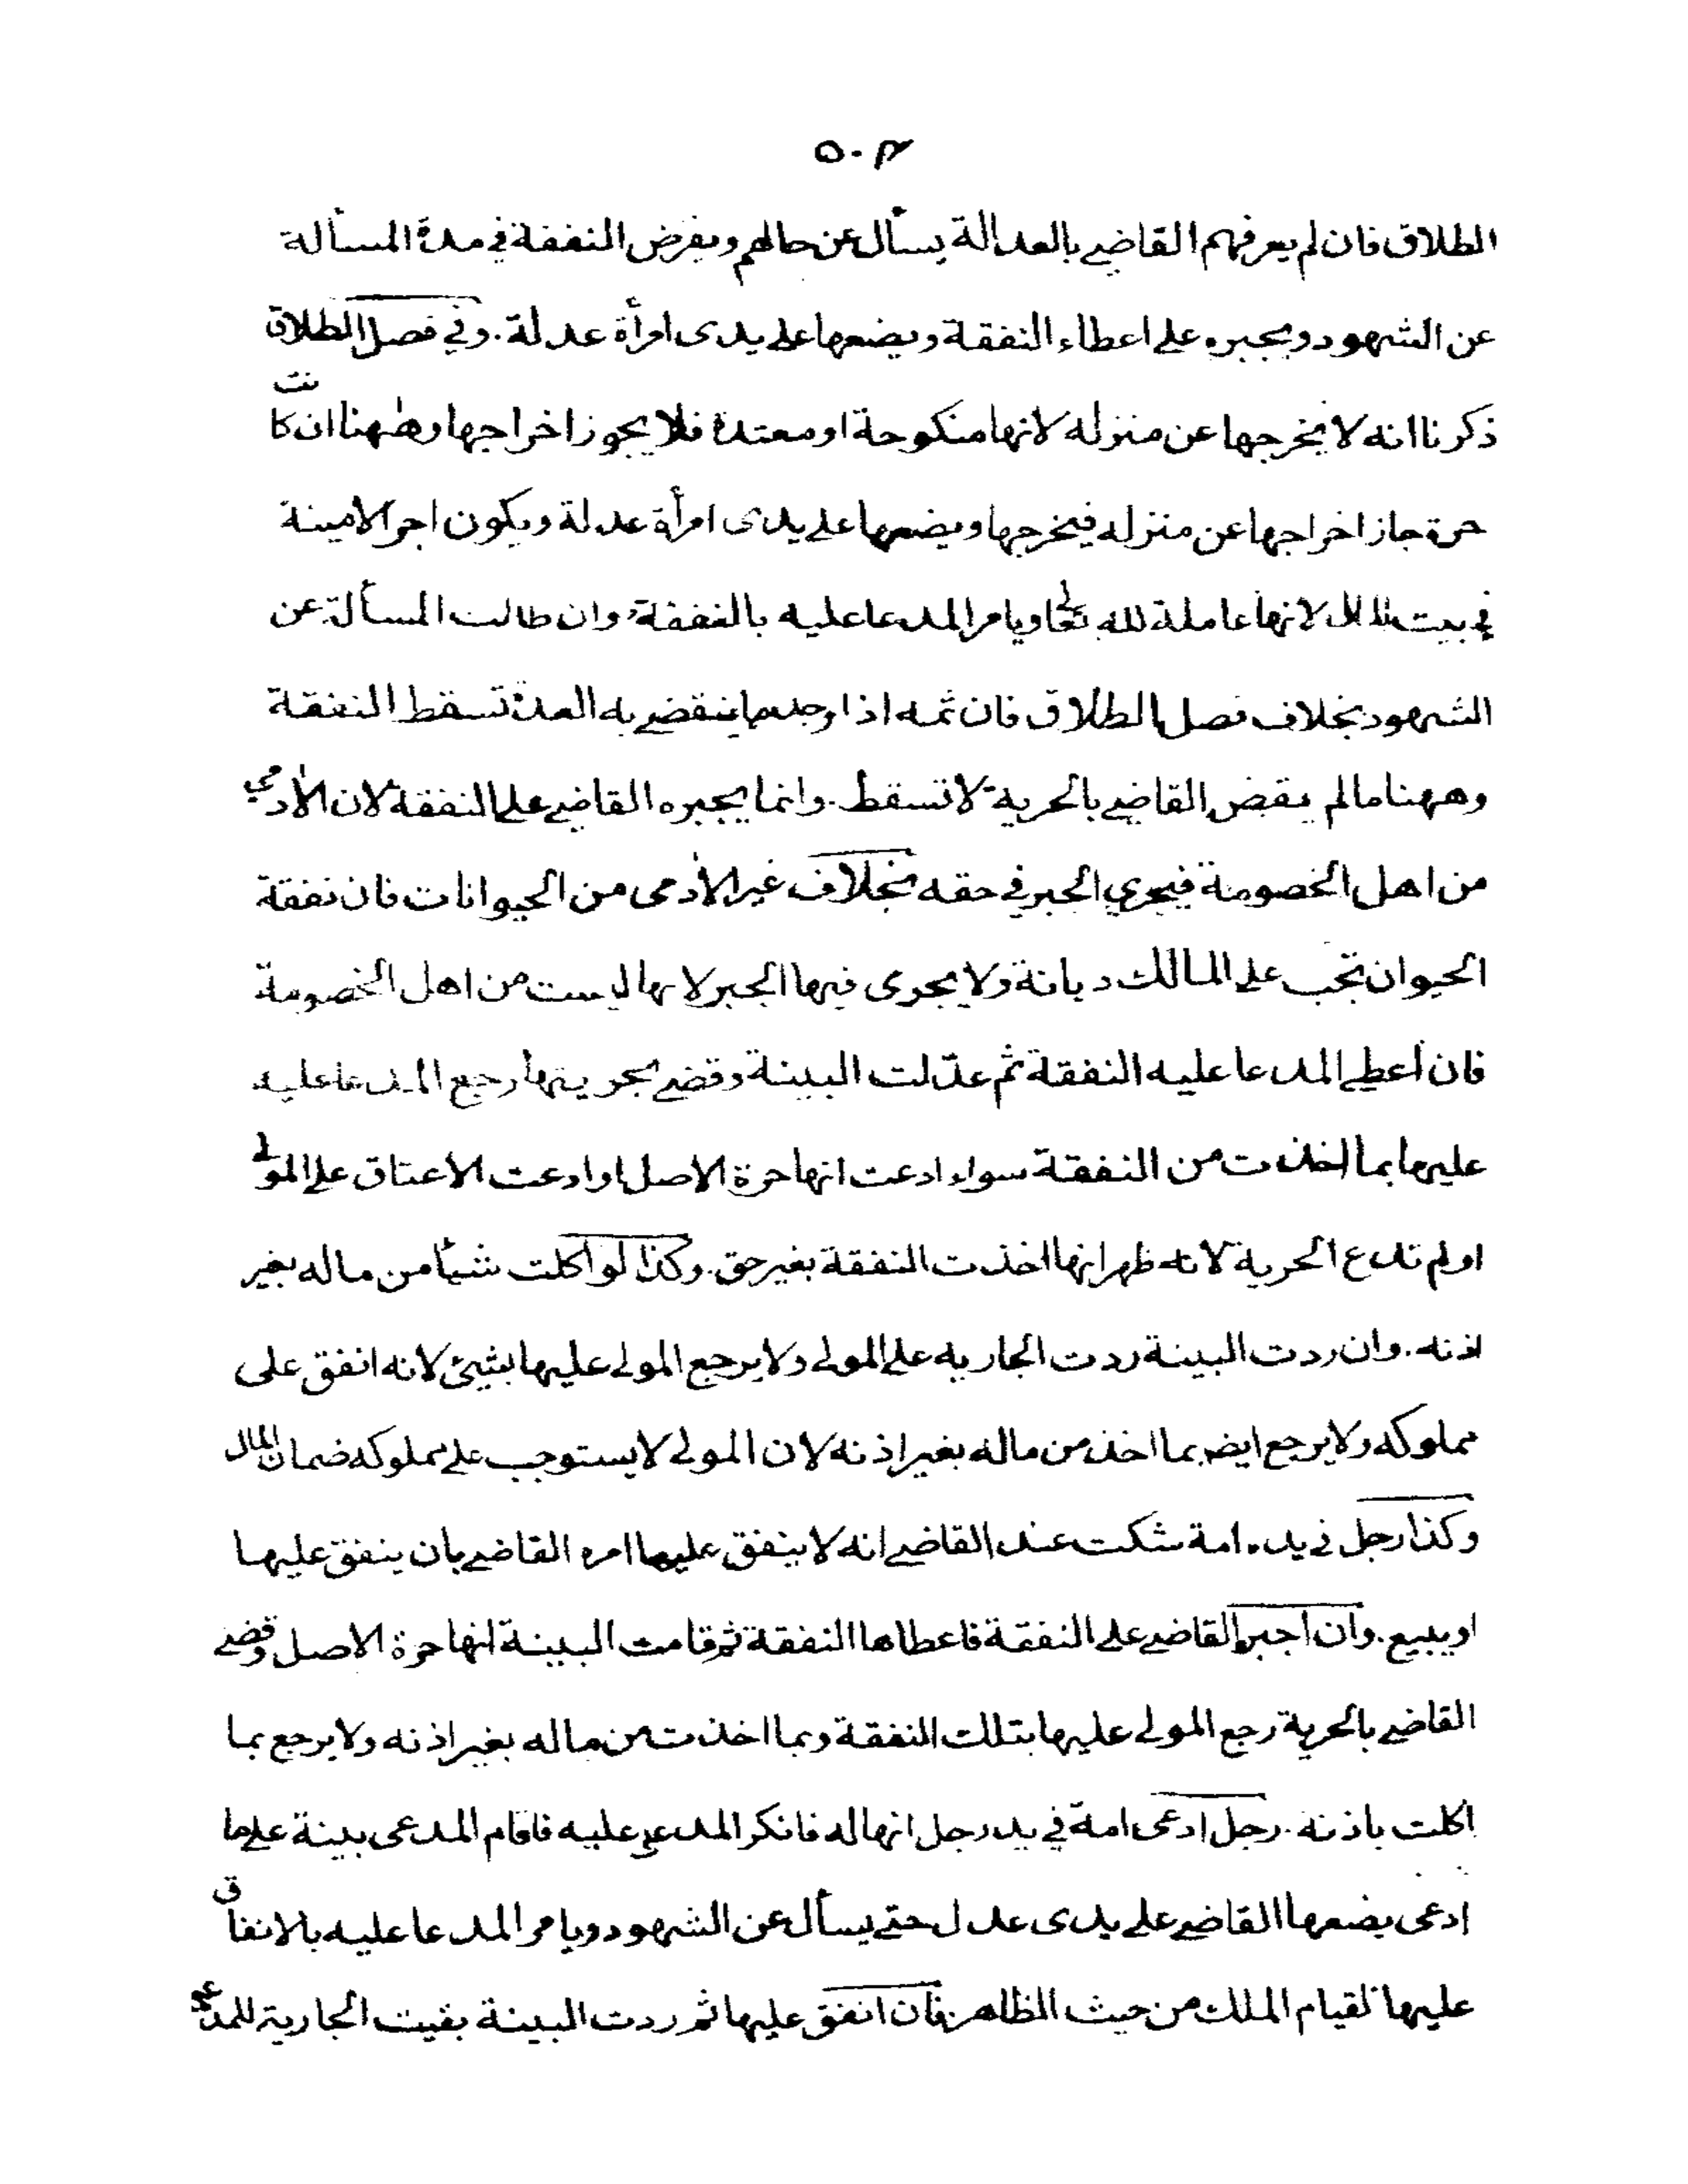 ٥٠٣
الطلاق فان لم يعرفهم القاضي بالعدالة يسأل عن حالهم ويفرض النفقة في مدة المسألة
عن الشهود ويجبره على اعطاء النفقة ويضعها على يدى امرأة عدلة. وفي فصل الطلاق
ذكرنا انه لا يخرجها عن منزله لانها منكوحة او معتدة فلا يجوز اخراجها وههنا ان كانت
حرة جاز اخراجها عن منزله فيخرجها ويضعها على يدى امرأة عدلة ويكون اجر الامينة
في بيت المال لانها عاملة لله تعالى ويامر المدعا عليه بالنفقة وان طالت المسألة عن
الشهود بخلاف فصل الطلاق فان ثمه اذا وجد ما ينقضي به العدة تسقط النفقة
وههنا مالم يقض القاضي بالحرية لا تسقط. وانما يجبره القاضي على النفقة لان الآدمي
من اهل الخصومة فيجري الجبر في حقه بخلاف غير الآدمى من الحيوانات فان نفقة
الحيوان تجب على المالك ديانة ولا يجرى فيها الجبر لانها ليست من اهل الخصومة
فان أعطي المدعا عليه النفقة ثم عدّلت البينة وقضي بحريتها رجع المدعا عليه
عليها بما اخذت من النفقة سواء ادعت انها حرة الاصل او ادعت الاعتاق على المولى
او لم تدع الحرية لانه ظهر انها اخذت النفقة بغير حق. وكذا لو اكلت شيئا من ماله بغير
اذنه. وان ردت البينة ردت الجارية على المولى ولا يرجع المولى عليها بشيئ لانه انفق على
مملوكه ولا يرجع ايضه بما اخذ من ماله بغير اذنه لان المولى لا يستوجب على مملوكه ضمان المال
وكذا رجل في يده امة شكت عند القاضي انه لا ينفق عليها امره القاضي بان ينفق عليها
او يبيع. وان اجبره القاضي على النفقة فاعطاها النفقة ثم قامت البينة انها حرة الاصل وقضي
القاضي بالحرية رجع المولى عليها بتلك النفقة وبما اخذت من ماله بغير اذنه ولا يرجع بما
اكلت باذنه. رجل ادعى امة في يد رجل انها له فانكر المدعى عليه فاقام المدعى بينة على ما
ادعى يضعها القاضي على يدى عدل حتى يسأل عن الشهود ويامر المدعا عليه بالانفاق
عليها لقيام الملك من حيث الظاهر فان انفق عليها ثم ردت البينة بقيت الجارية للمدعى